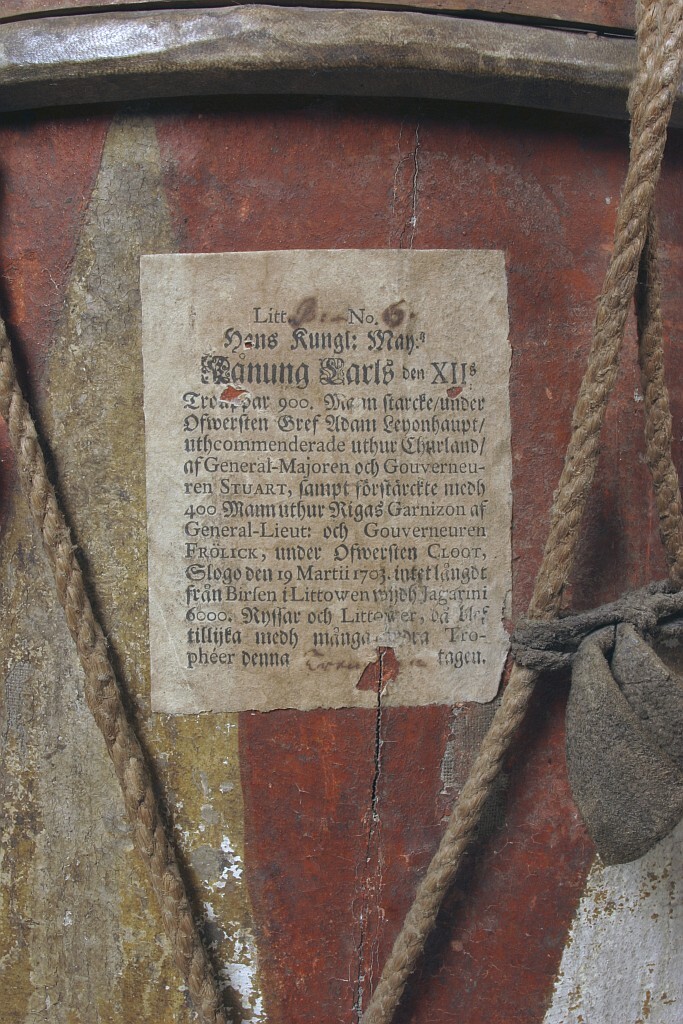 Litt. B: No. 6.
Hans Kungl: May:ts
Kånung Carls den XIIs
Trouppar 900. Man starcke/under
Ofwersten Gref Adam Leyonhaupt/
uthcommenderade uthur Churland/
af General-Majoren och Gouverneu-
ren STUART, sampt förstärckte medh
400 Mann uthur Rigas Garnizon af
General-Lieut: och Gouverneuren
FRÖLICK, under Ofwersten CLOOT,
Slogo den 19 Martii 1703. intet långdt
från Birsen i Littowen widh Jagarini
6000. Ryssar och Littower, då blef
tillijka medh många andra Tro-
phéer denna tagen.